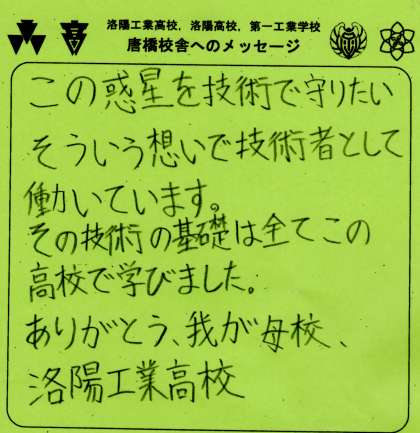 洛陽工業高校，洛陽高校，第一工業学校
唐橋校舎へのメッセージ
この惑星を技術で守りたい
そういう想いで技術者として
働いています。
その技術の基礎は全てこの
高校で学びました。
ありがとう、我が母校、
洛陽工業高校